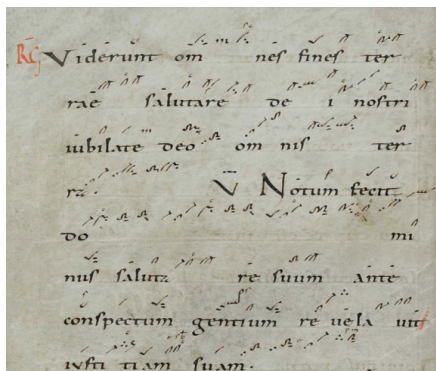 RG Viderunt om nes fines ter
rae salutare de i nostri
iubilate deo om nis ter
ra. V Notum fecit
do mi
nus salut re suum ante
conspectum gentium re vela vit
iusti tiam suam.